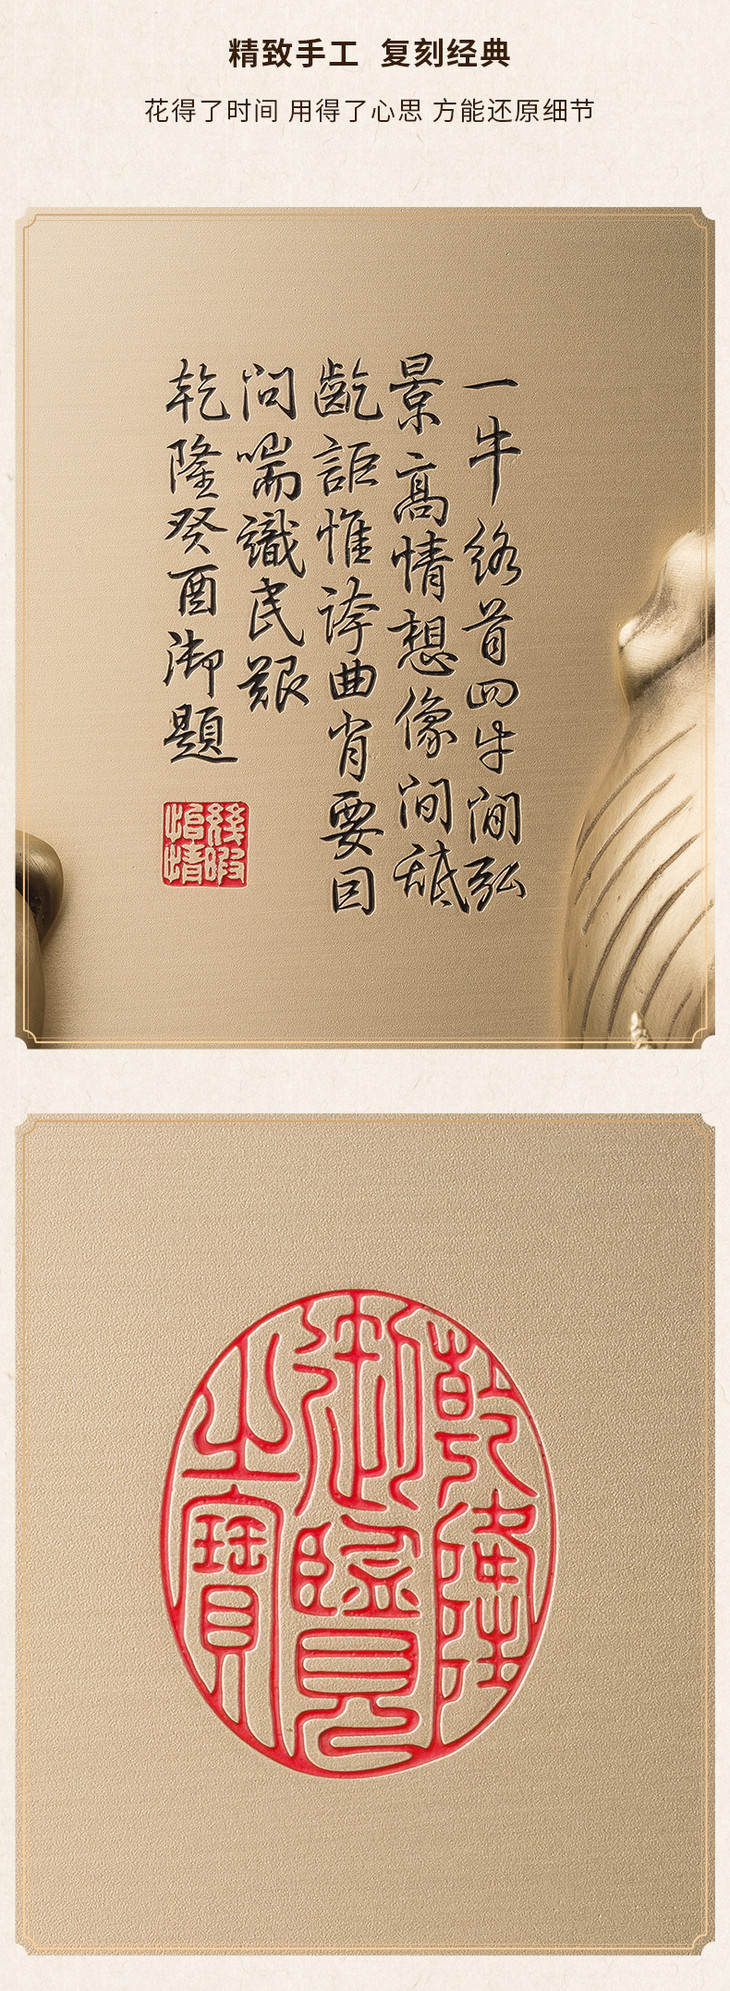 精致手工 复刻经典
花得了时间 用得了心思 方能还原细节
一牛络首四牛间弘
景高情想像间舐
齕讵惟誇曲肖要因
问喘識民艱
乾隆癸酉御題
幾暇
怡情
乾隆
御覽
之寶